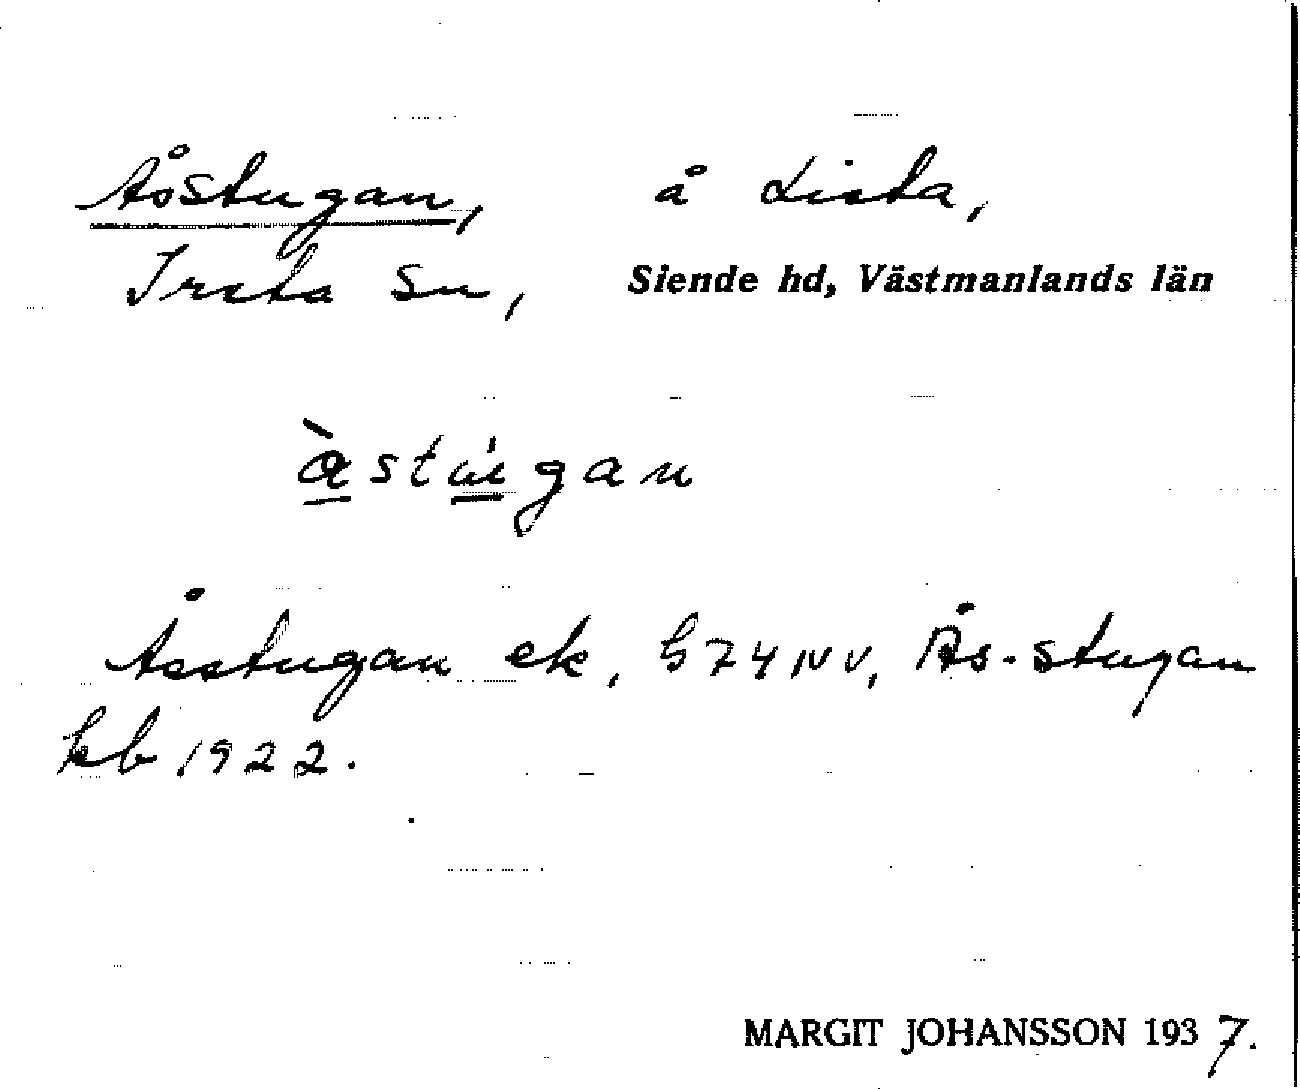 Åsstugan, å Lista,
Irsta sn, Siende hd, Västmanlands län
àstúgan
Åsstugan ek, G 74 NV, Ås-stugan
kb 1922.
MARGIT JOHANSSON 1937.